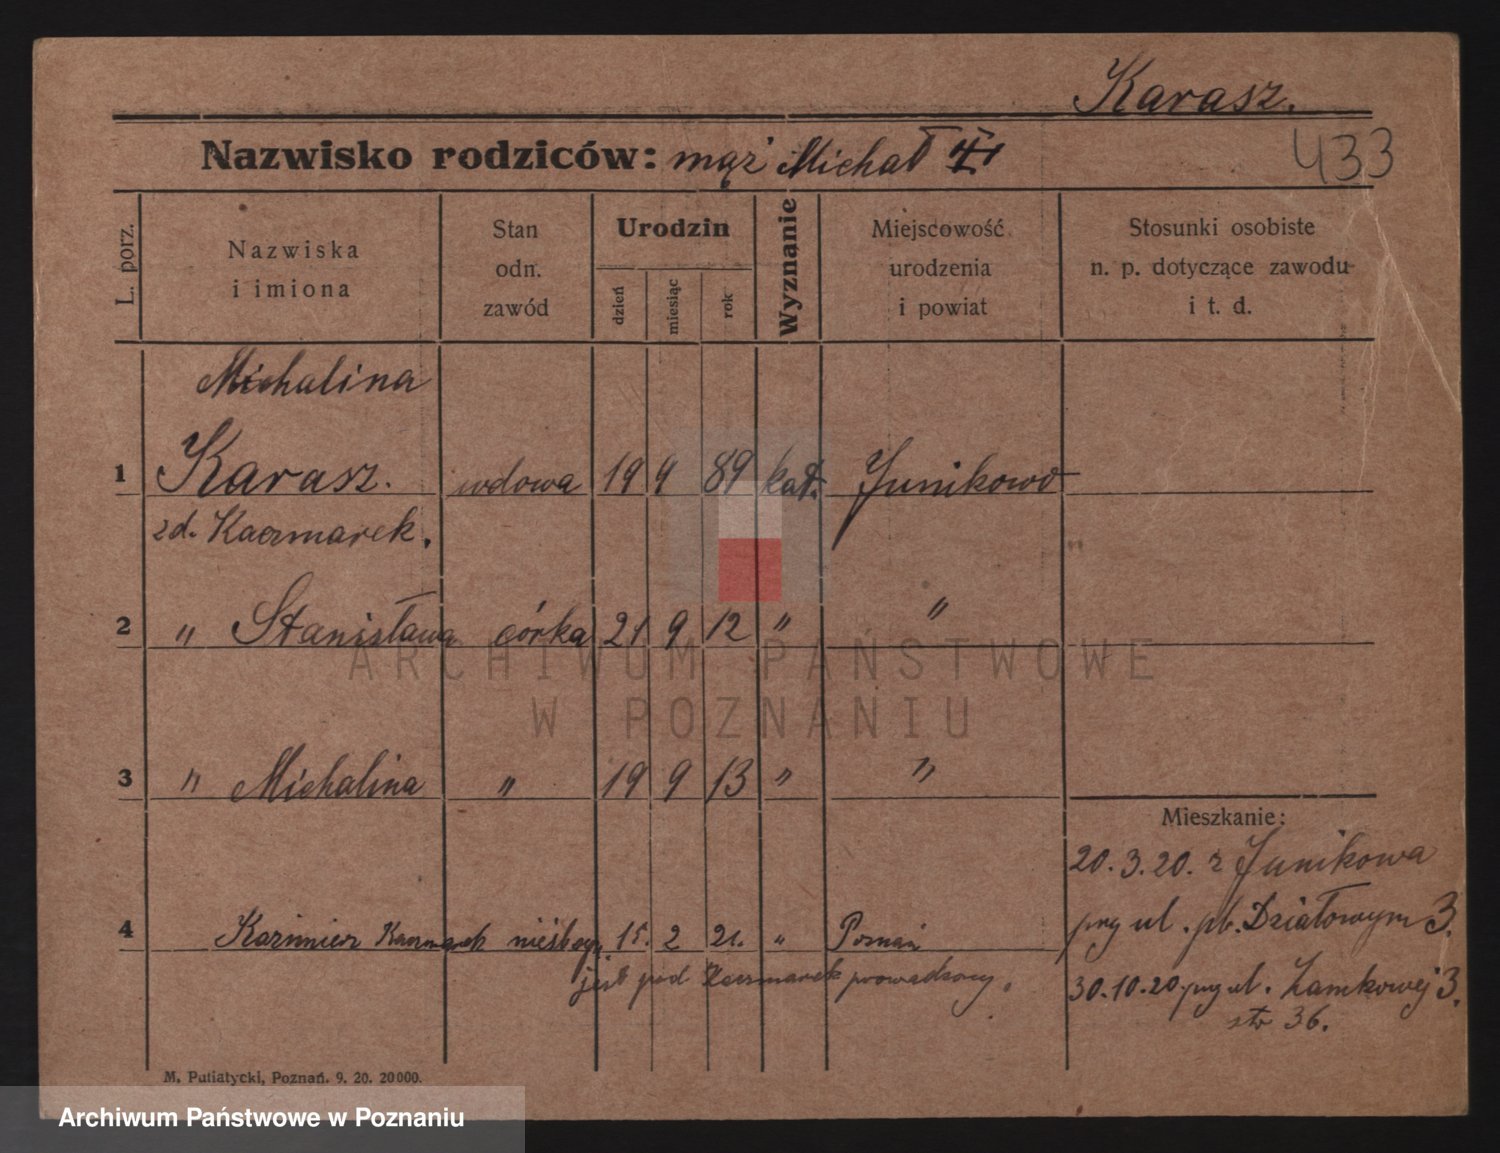 Karasz.
433
Nazwisko rodziców: mąż Michał
L. porz.
Nazwiska
i imiona
Stan
odn.
zawód
Urodzin
dzień
miesiąc
rok
Wyznanie
Miejscowość
urodzenia
i powiat
Stosunki osobiste
n. p. dotyczące zawodu
i t. d.
Michalina
1 Karasz. wdowa 19 9 89 kat. Junikowo
zd. Kaczmarek.
2 " Stanisława córka 21 9 12 " "
3 " Michalina " 19 9 13 " "
4 Kazimierz Kaczmarek 15. 2 21. " Poznań
jest pod Kaczmarek prowadzony.
Mieszkanie:
20.3.20. z Junikowa
przy ul. pl. Działowym 3.
30.10.20 przy ul. Zamkowej 3.
str 36.
M. Putiatycki, Poznań. 9. 20. 20000.
ARCHIWUM PAŃSTWOWE
W POZNANIU
Archiwum Państwowe w Poznaniu